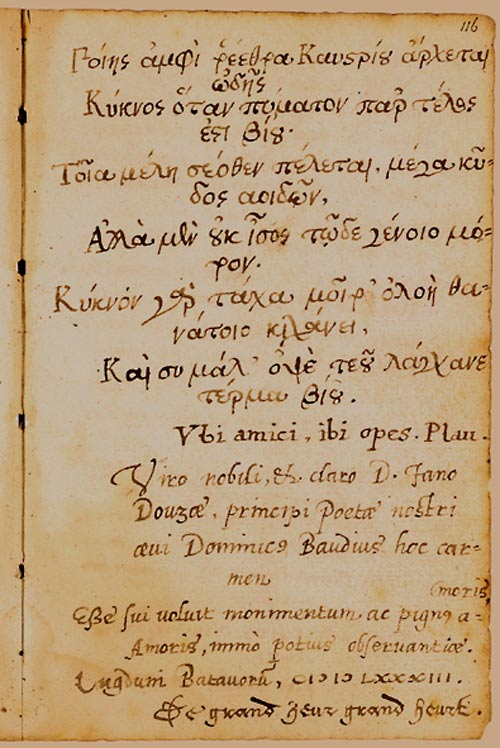 116
Γοίης ἀμφὶ ῥέεθρα Καυστρίου ἄρχεται
ὠδῆς
Κύκνος ὅταν πύματον παρ τέλος
ἐστι βίου.
Τοῖα μέλη σέοθεν πέλεται, μέγα κῦ-
δος αοιδῶν,
Ἀλλὰ μὲν οὐκ ἶσος τῶδε γένοιο μό-
ρον.
Κύκνόν γὰρ τάχα μοῖρ' ὀλοὴ θα-
νάτοιο κιχάνει,
Καὶ συ μάλ' ὀψὲ τεοῦ λάγχανε
τέρμα βίου.
Vbi amici, ibi opes. Plau.
Viro nobili, & claro D. Jano
Douzæ, principi Poetæ nostri
æui Dominicus Baudius hoc car-
men
(moris
Esse sui voluit monimentum ac pignus a-
Amoris, immò potius obseruantiæ.
Lugduni Batauorũ, CIↃ IↃ LXXXIII.
De grand heur grand heurt.